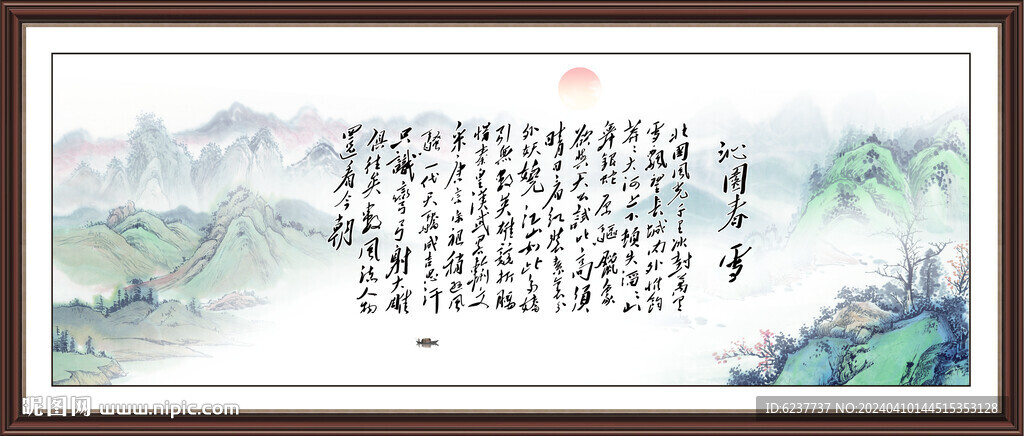 沁園春 雪
北國風光千里冰封萬里
雪飄望長城內外惟餘
莽々大河上下頓失滔々山
舞銀蛇原驅蠟象
欲與天公試比高須
晴日看紅裝素裹分
外妖嬈江山如此多嬌
引無數英雄競折腰
惜秦皇漢武略輸文
采唐宗宋祖稍遜風
騷一代天驕成吉思汗
只識彎弓射大雕
俱往矣數風流人物
還看今朝
昵图网 www.nipic.com
ID:6237737 NO:20240410144515353128